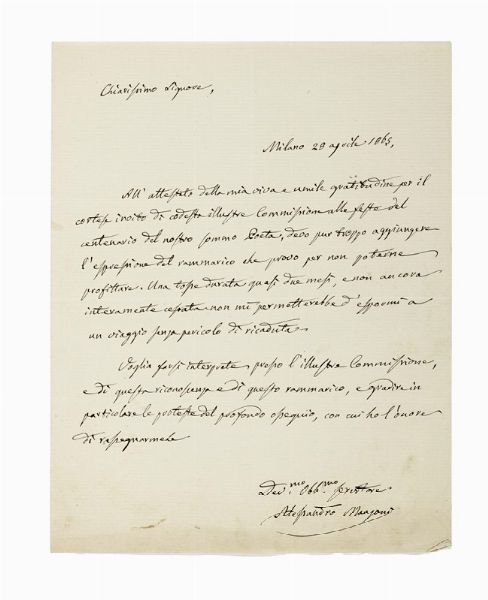 Chiarissimo Signore,
Milano 29 aprile 1865,
All' attestato della mia viva e umile gratitudine per il
cortese invito di codesta illustre Commissione alle feste del
centenario del nostro sommo Poeta, devo pur troppo aggiungere
l'espressione del rammarico che provo per non poterne
profittare. Una tosse durata quasi due mesi, e non ancora
interamente cessata non mi permetterebbe d'espormi a
un viaggio senza pericolo di ricaduta.
Voglia farsi interprete presso l'illustre Commissione,
e di questa riconoscenza e di questo rammarico, e gradire in
particolare le proteste del profondo ossequio, con cui ho l'onore
di rassegnarmele
Dev.mo Obb.mo servitore
Alessandro Manzoni